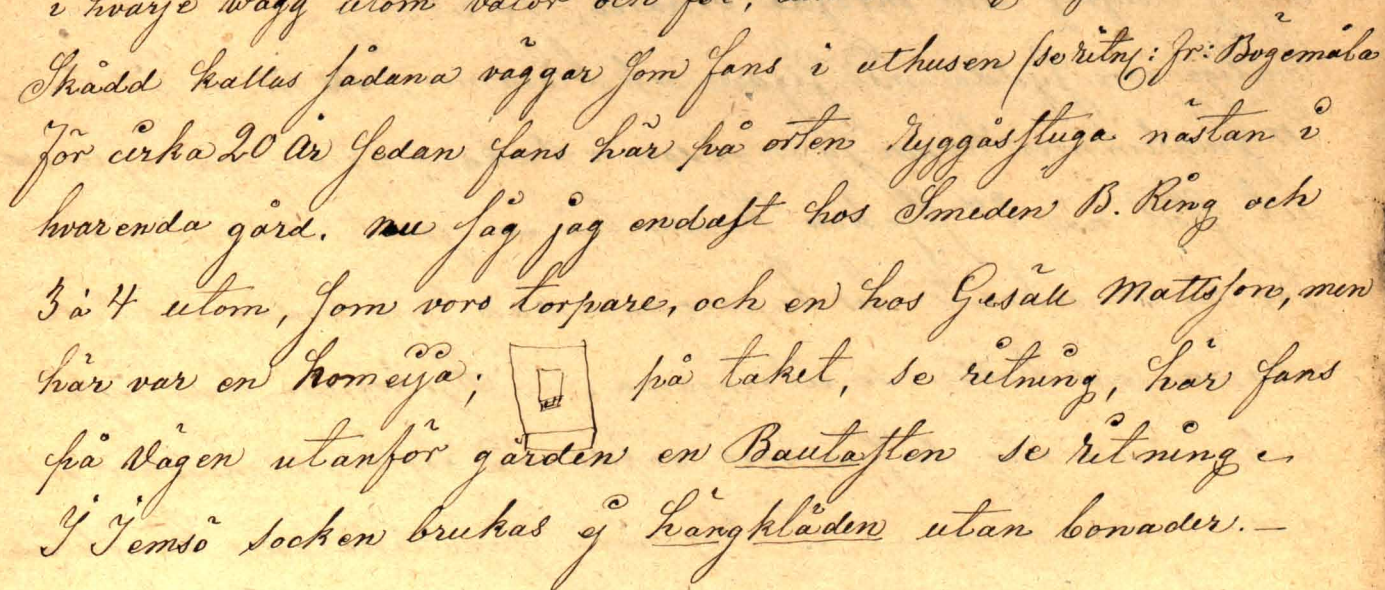 i hvarje vägg utom
Skådd kallas sådana väggar som fans i uthusen (se ritn: fr: Bögemåla
För cirka 20 År sedan fans här på orten Ryggåsstuga nästan i
hvarenda gård. nu såg jag endast hos Smeden B. Ring och
3 à 4 utom, som voro torpare, och en hos Gesäll Mattsson, men
här var en homeija; på taket, se ritning, här fans
på Vägen utanför gården en Bautasten se ritning
I Jemsö socken brukas ej hängkläden utan bonader. —